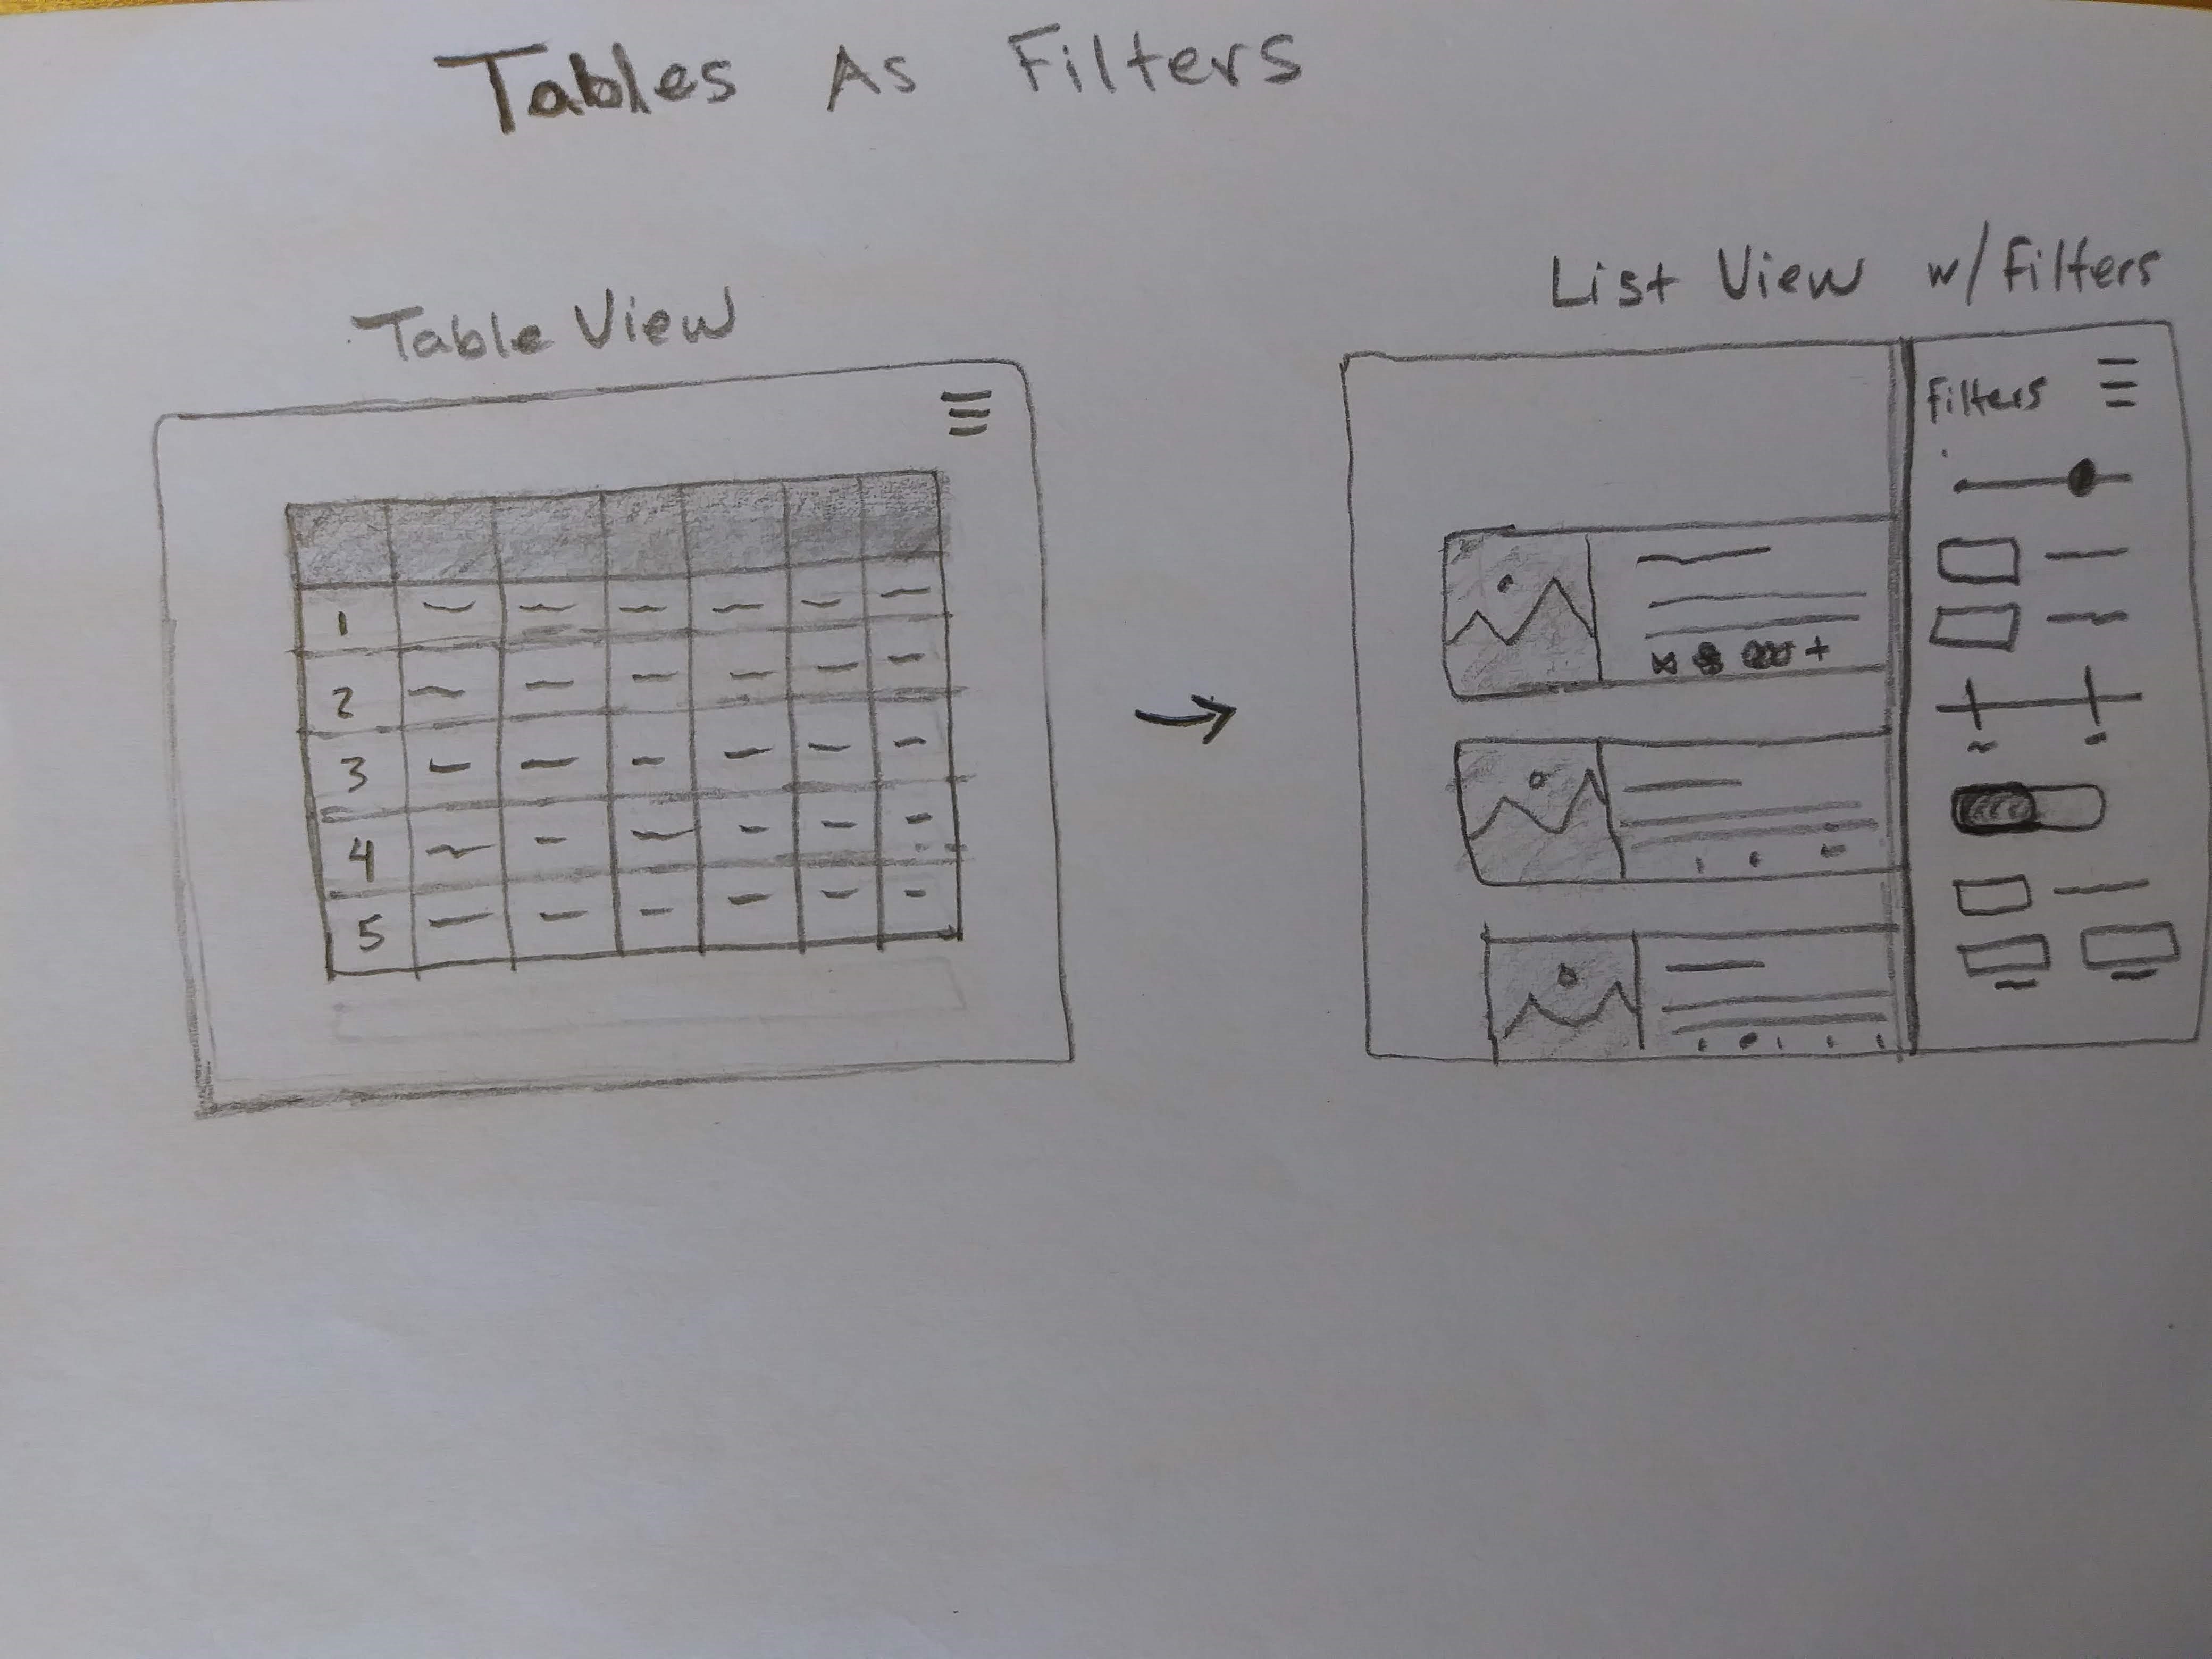 Tables As Filters
Table View
List View w/Filters
Filters
1
2
3
4
5